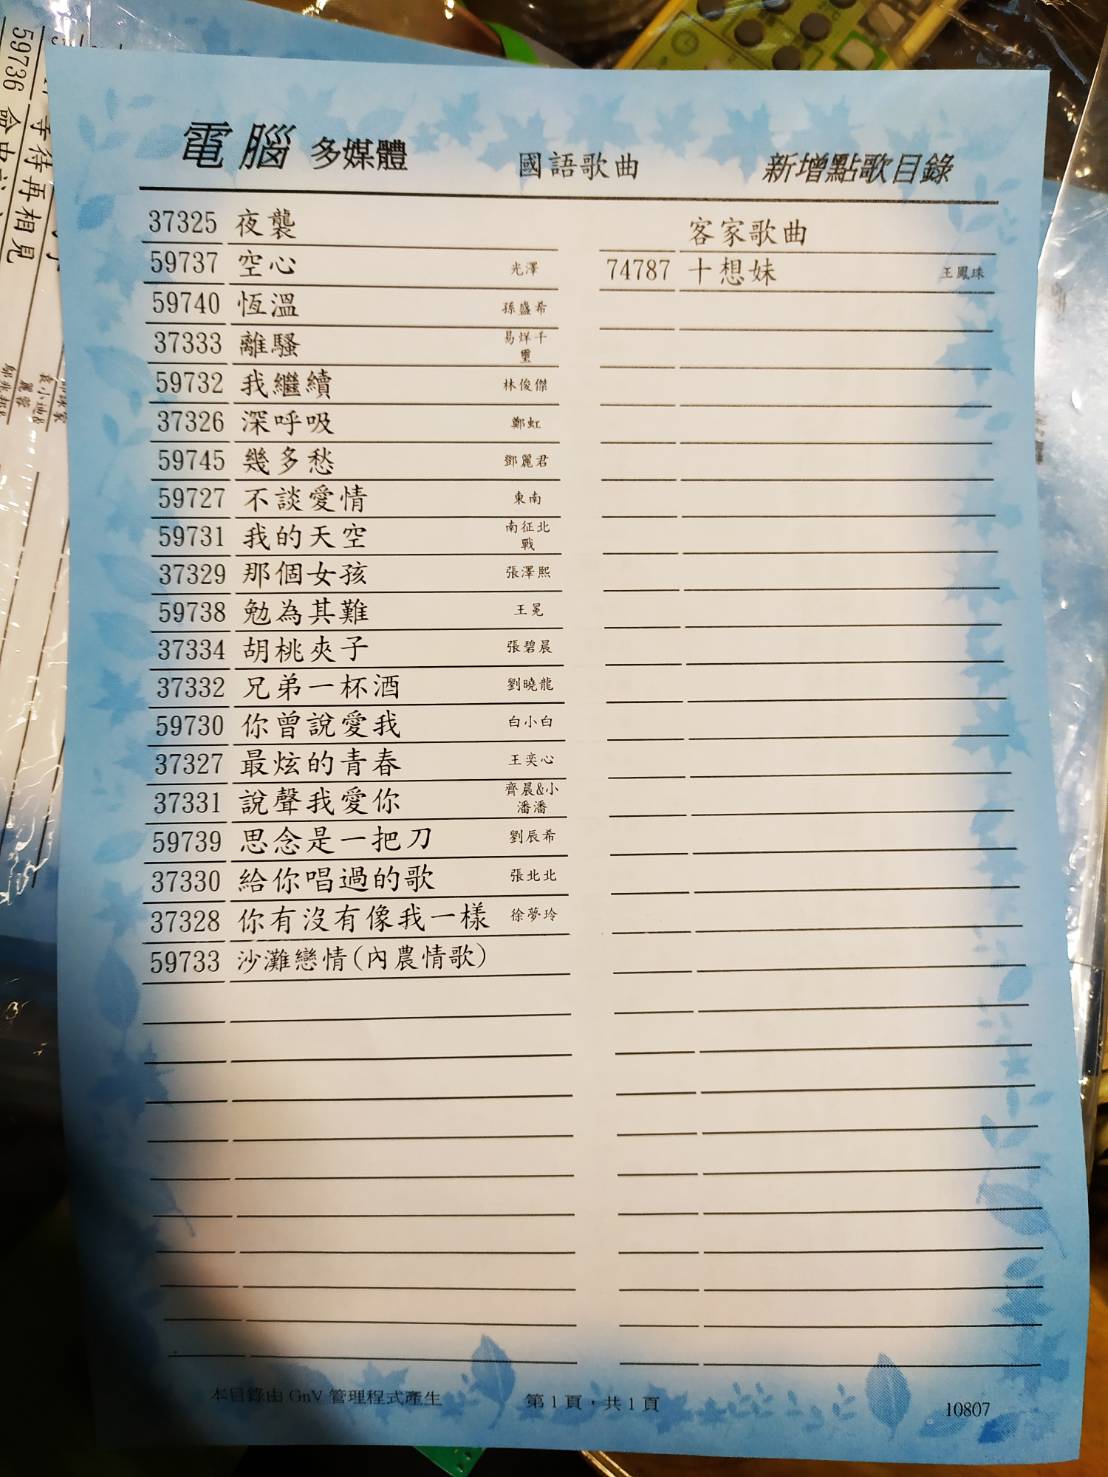 電腦 多媒體 國語歌曲 新增點歌目錄
37325 夜襲
59737 空心 光澤
59740 恆溫 孫盛希
37333 離騷 易烊千
璽
59732 我繼續 林俊傑
37326 深呼吸 鄭虹
59745 幾多愁 鄧麗君
59727 不談愛情 東南
59731 我的天空 南征北
戰
37329 那個女孩 張澤熙
59738 勉為其難 王冕
37334 胡桃夾子 張碧晨
37332 兄弟一杯酒 劉曉龍
59730 你曾說愛我 白小白
37327 最炫的青春 王奕心
37331 說聲我愛你 齊晨&小
潘潘
59739 思念是一把刀 劉辰希
37330 給你唱過的歌 張北北
37328 你有沒有像我一樣 徐夢玲
59733 沙灘戀情(內農情歌)
客家歌曲
74787 十想妹 王鳳珠
本目錄由 GnV 管理程式產生 第1頁，共1頁 10807
等待再相見
59736